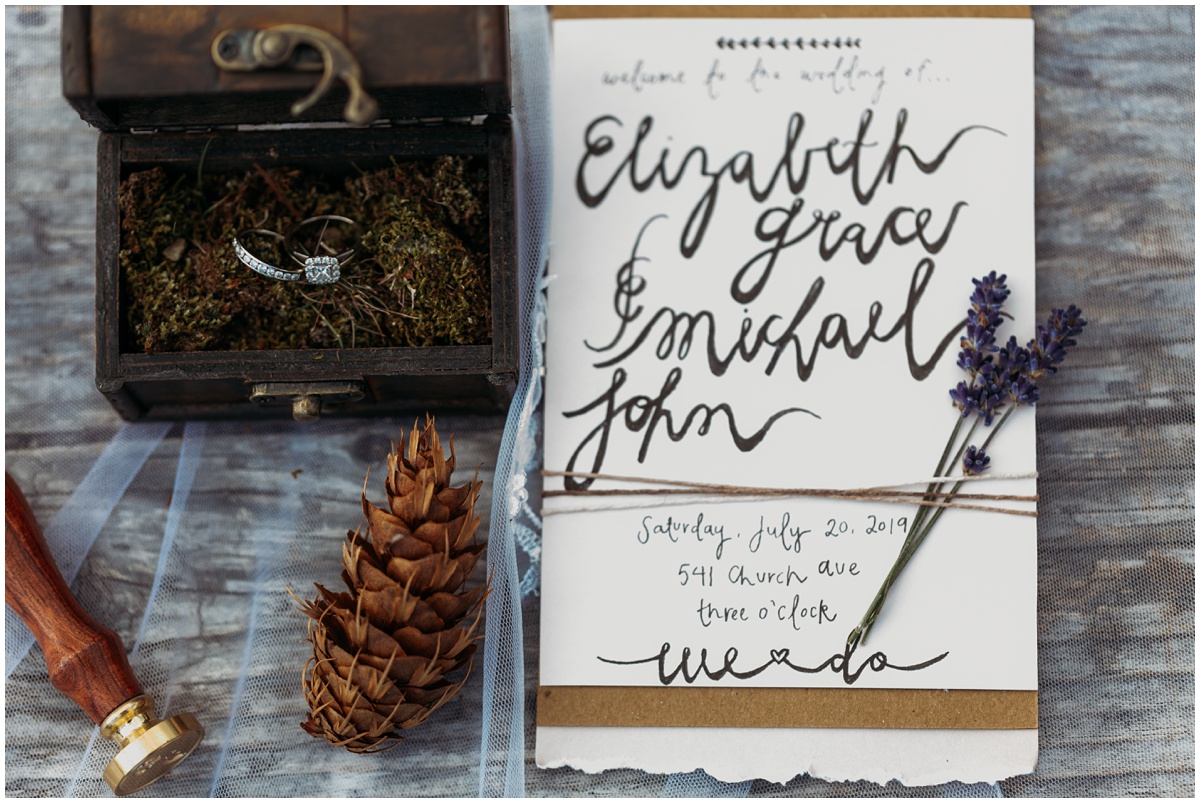 welcome to the wedding of...
Elizabeth
grace
& michael
john
Saturday, July 20, 2019
541 Church ave
three o'clock
we do